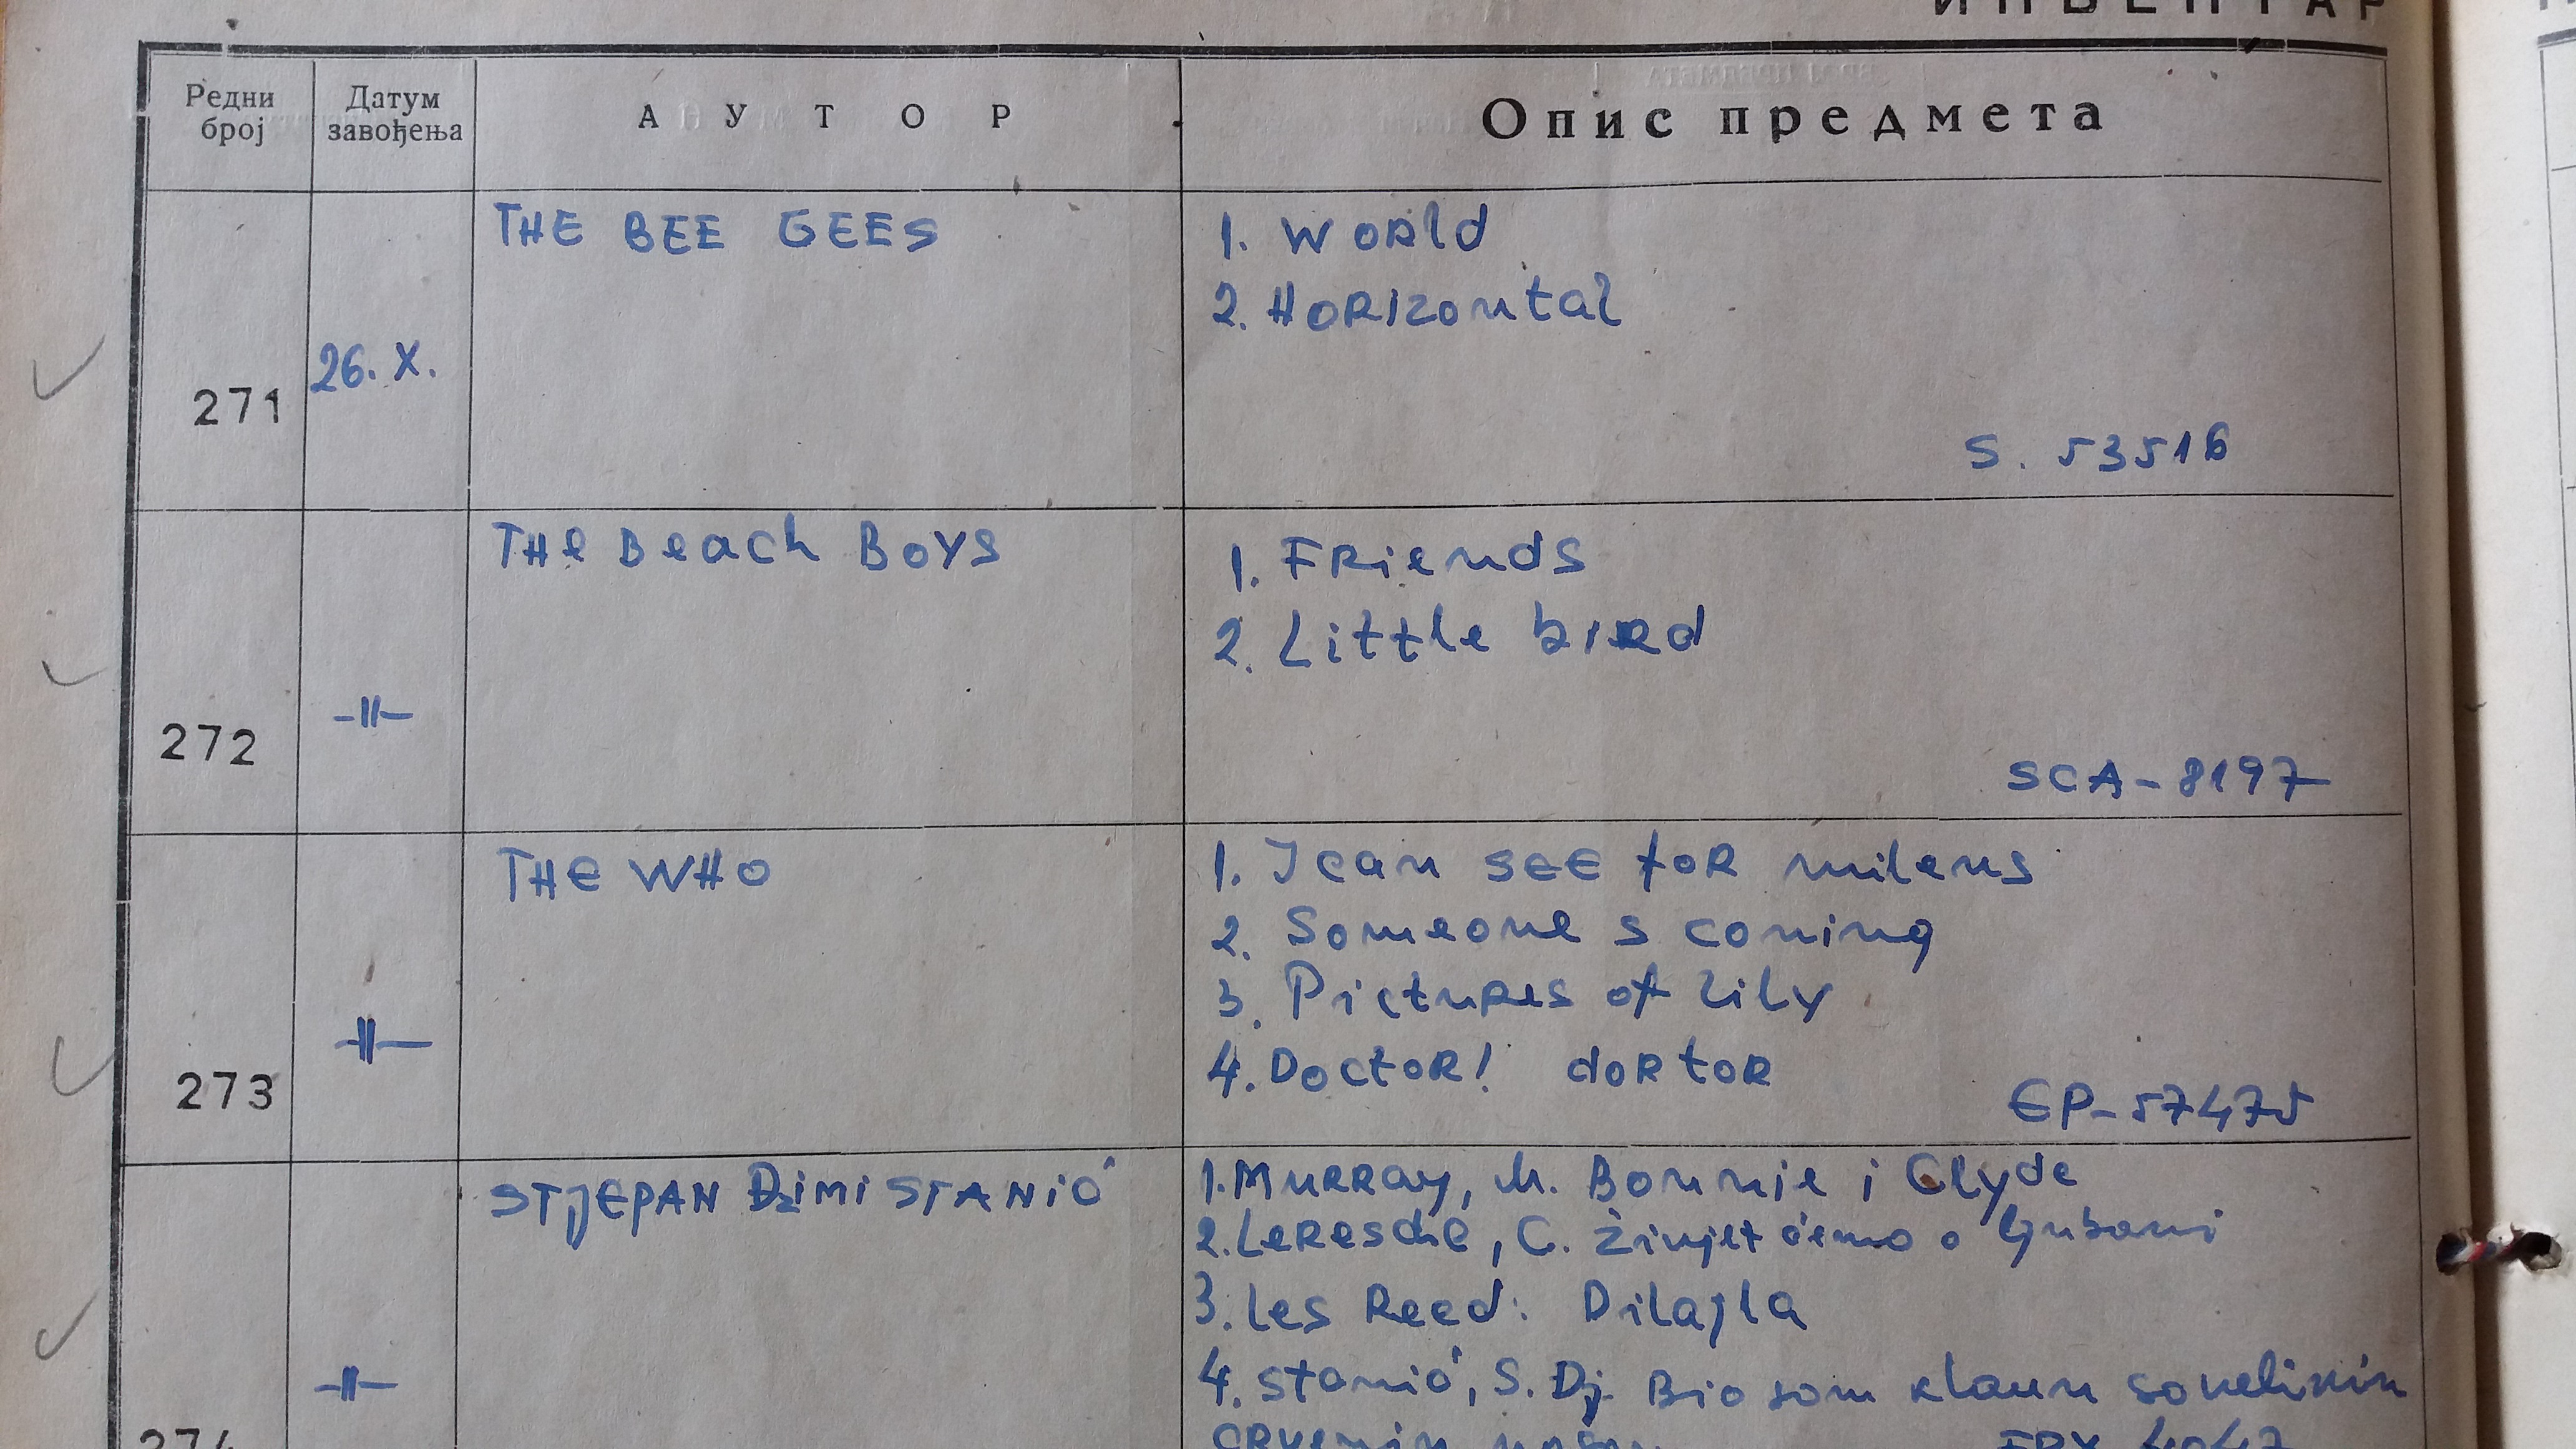 ИНВЕНТАР
Редни број
Датум завођења
АУТОР
Опис предмета
271
26. X.
THE BEE GEES
1. World
2. Horizontal
S. 53516
272
-||-
The Beach Boys
1. Friends
2. Little bird
SCA-8197
273
-||-
THE WHO
1. I can SEE for milens
2. Someone s coming
3. Pictures of Lily
4. Doctor! dortor
EP-57475
274
-||-
STJEPAN Džimi STANIĆ
1. Murray, M. Bonnie i Clyde
2. Leresche, C. Živjet ćemo o ljubavi
3. Les Reed: Dilajla
4. Stanić, S. Dj. Bio sam klaun sa velikim
crvenim nosem
EPY 4047